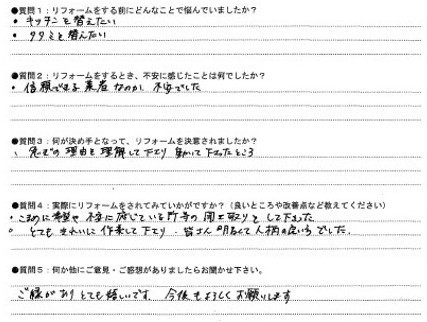 ●質問1：リフォームをする前にどんなことで悩んでいましたか？
・キッチンを替えたい
・タタミを替えたい
●質問2：リフォームをするとき、不安に感じたことは何でしたか？
・信頼できる業者なのか、不安でした
●質問3：何が決め手となって、リフォームを決意されましたか？
理由を理解して下さり動いて下さったところ
●質問4：実際にリフォームをされてみていかがですか？（良いところや改善点など教えてください）
・こまめに希望や不安に感じている所等の聞き取りをして下さった
・とてもきれいに作業して下さり、皆さん明るくて人柄の良い方でした。
●質問5：何か他にご意見・ご感想がありましたらお聞かせ下さい。
ご縁がありとても嬉しいです。今後もよろしくお願いします